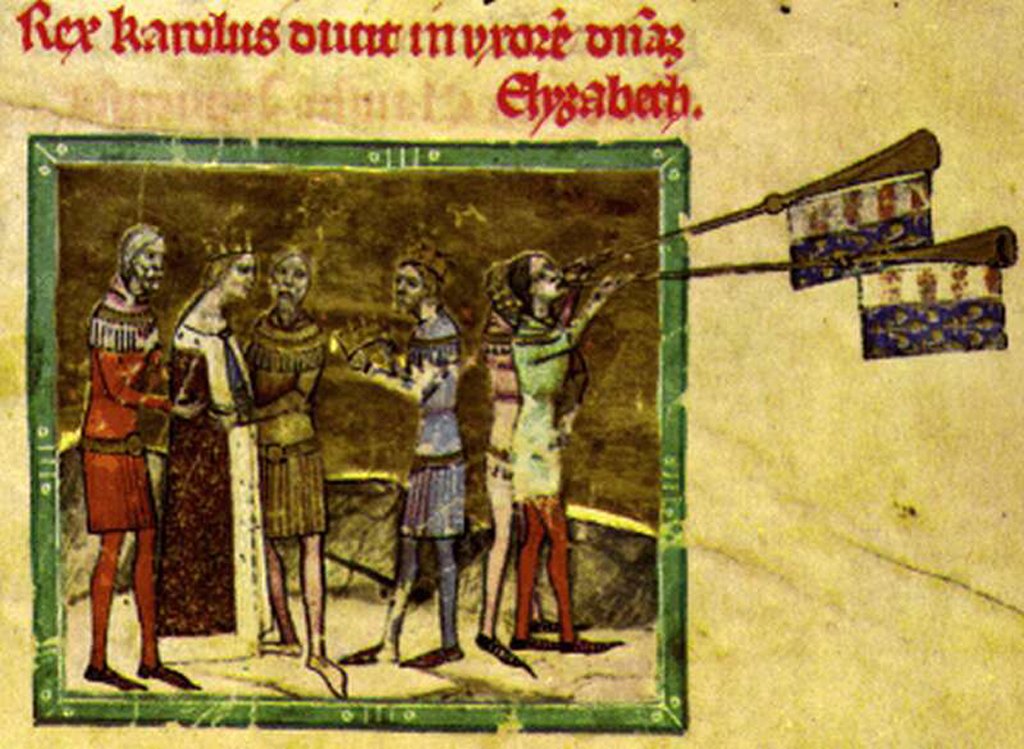 Rex karolus ducit in uxorē dnāȝ
Elyzabeth.